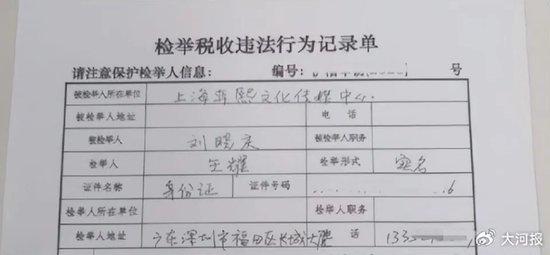 检举税收违法行为记录单
请注意保护检举人信息： 编号： 号
被检举人所在单位 上海 熙文化传媒中心
被检举人地址 电话
被检举人 刘晓庆 被检举人职务
检举人 王耀 检举形式 实名
证件名称 身份证 证件号码 6
检举人所在单位 检举人职务
检举人地址 广东深圳市福田区长城大厦 话 133
大河报